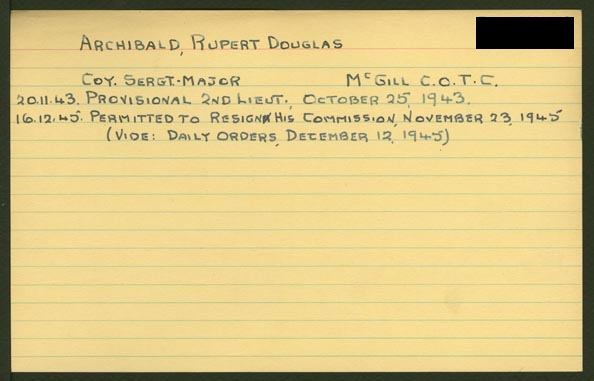 ARCHIBALD, RUPERT DOUGLAS
COY. SERGT-MAJOR McGILL C.O.T.C.
20.11.43. PROVISIONAL 2ND LIEUT., OCTOBER 25, 1943.
16.12.45. PERMITTED TO RESIGN HIS COMMISSION, NOVEMBER 23, 1945
(VIDE: DAILY ORDERS, DECEMBER 12, 1945)